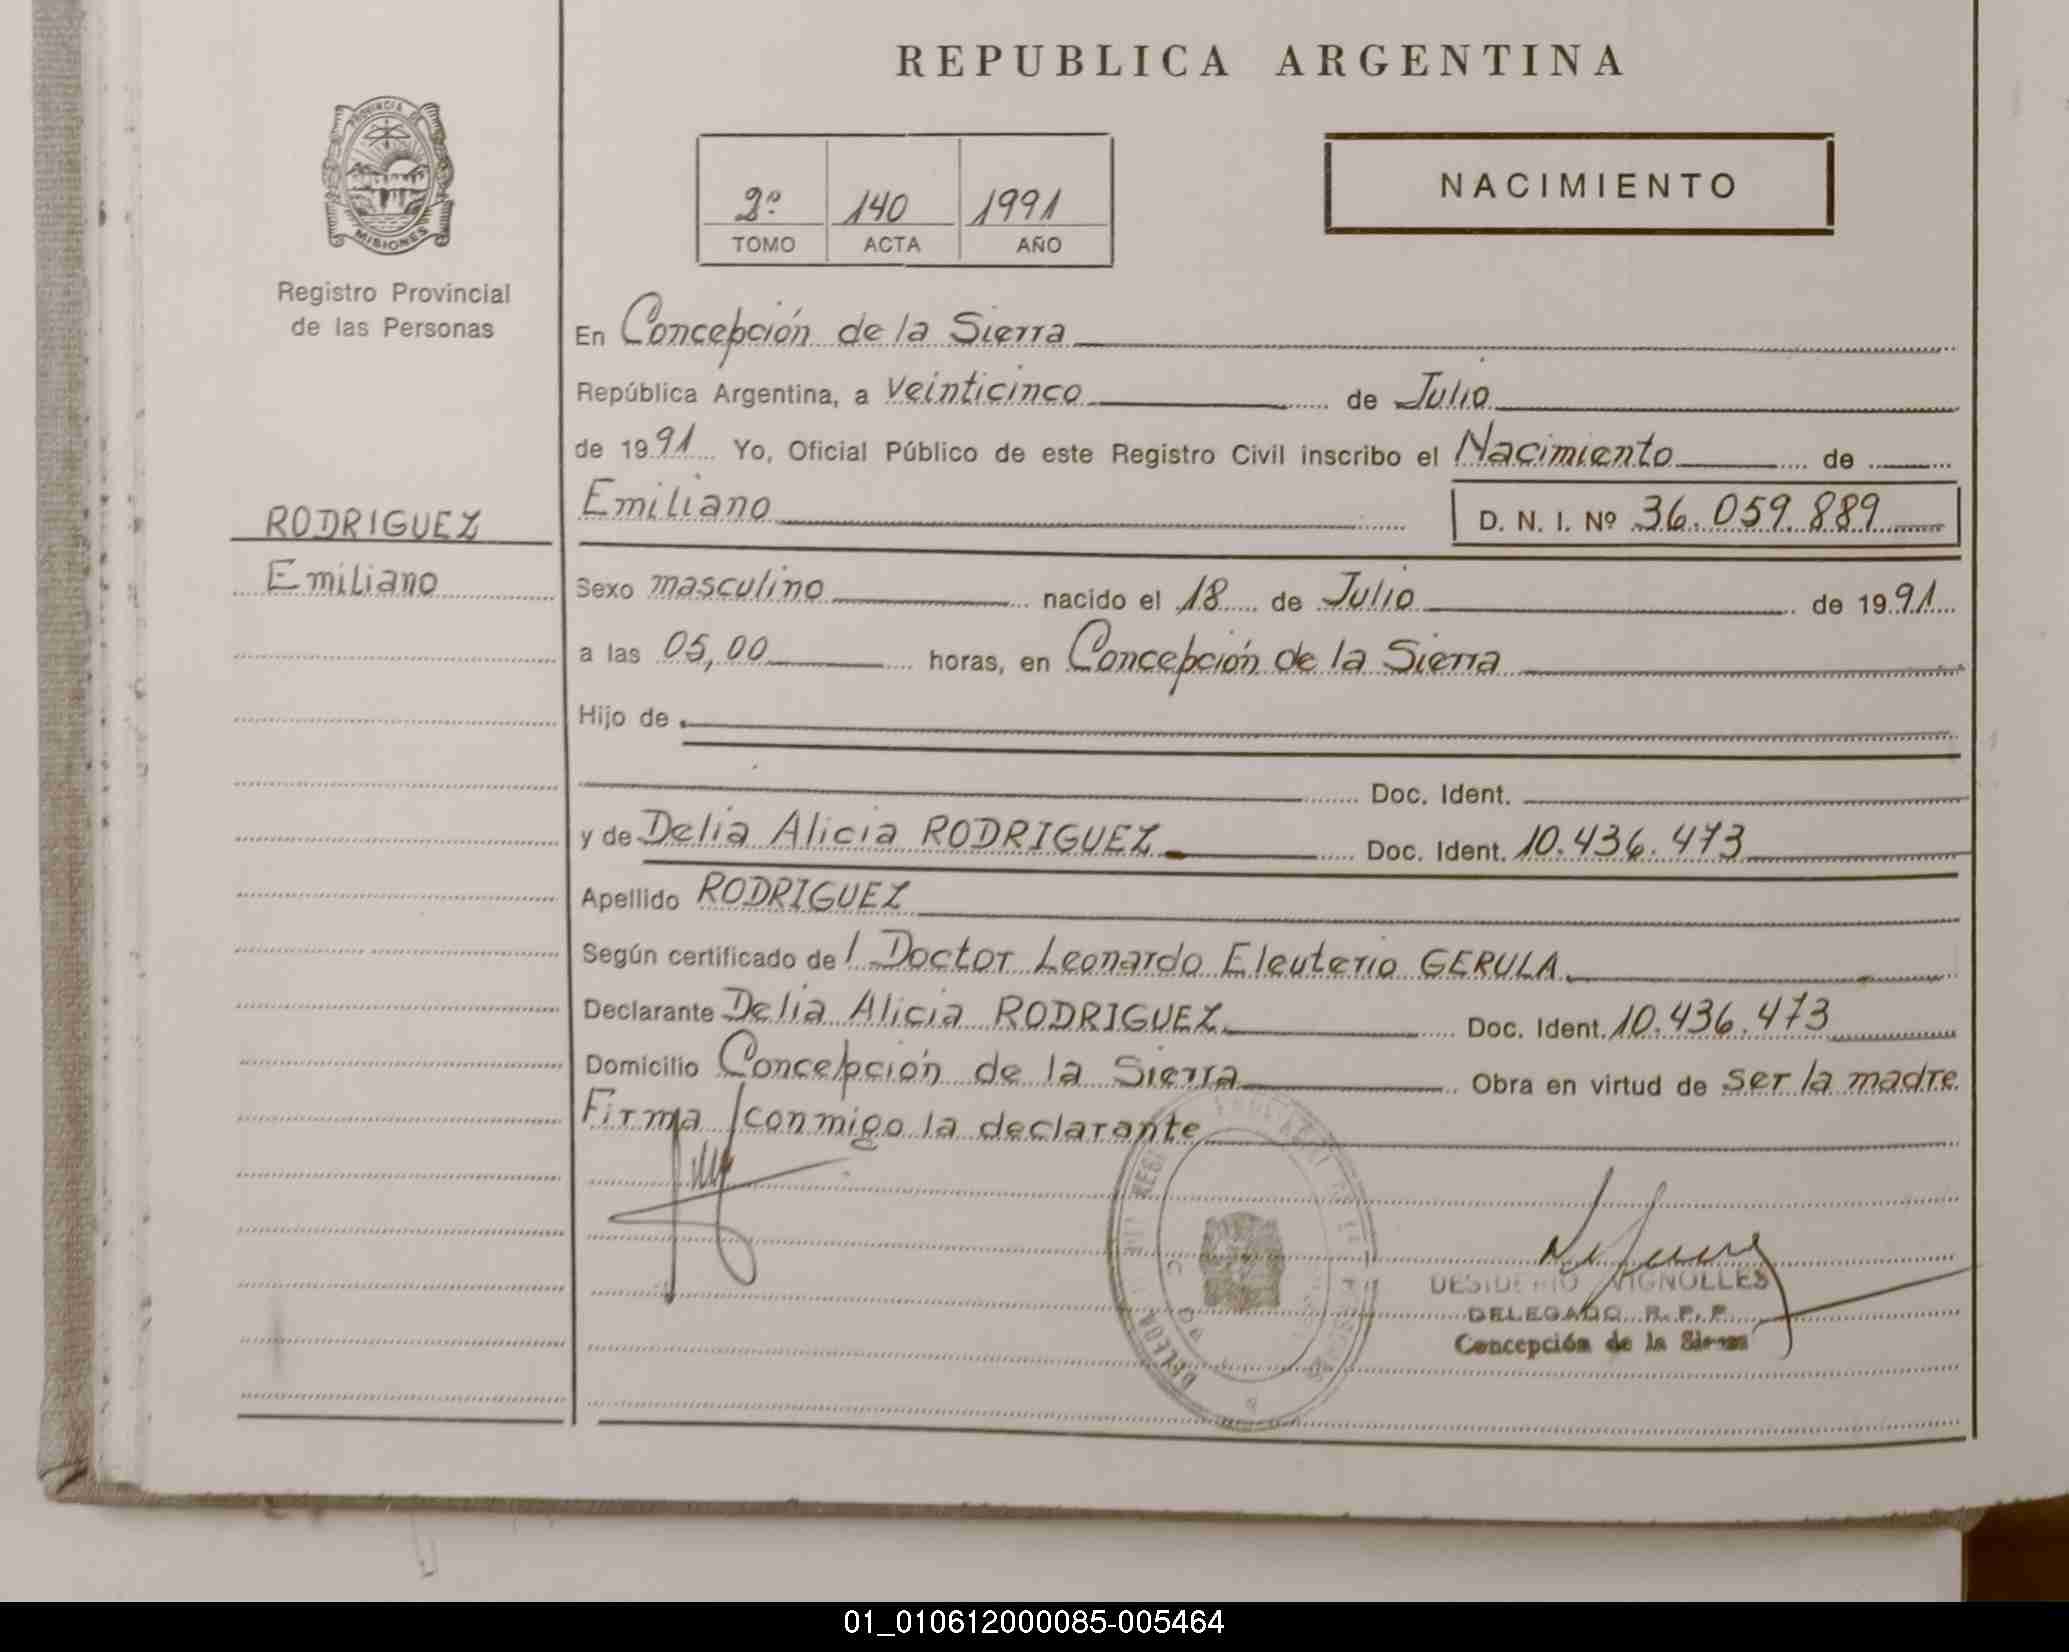 REPUBLICA ARGENTINA
PROVINCIA DE
MISIONES
Registro Provincial
de las Personas
2º 140 1991
TOMO ACTA AÑO
NACIMIENTO
En Concepción de la Sierra
República Argentina, a Veinticinco de Julio
de 1991 Yo, Oficial Público de este Registro Civil inscribo el Nacimiento de
RODRIGUEZ
Emiliano
Emiliano D. N. I. Nº 36.059.889
Sexo masculino nacido el 18 de Julio de 1991
a las 05,00 horas, en Concepción de la Sierra
Hijo de
Doc. Ident.
y de Delia Alicia RODRIGUEZ Doc. Ident. 10.436.473
Apellido RODRIGUEZ
Según certificado de l Doctor Leonardo Eleuterio GERULA
Declarante Delia Alicia RODRIGUEZ Doc. Ident. 10.436.473
Domicilio Concepción de la Sierra Obra en virtud de ser la madre
Firma conmigo la declarante
DESIDERIO VIGNOLLES
DELEGADO R. P. P.
Concepción de la Sierra
01_010612000085-005464